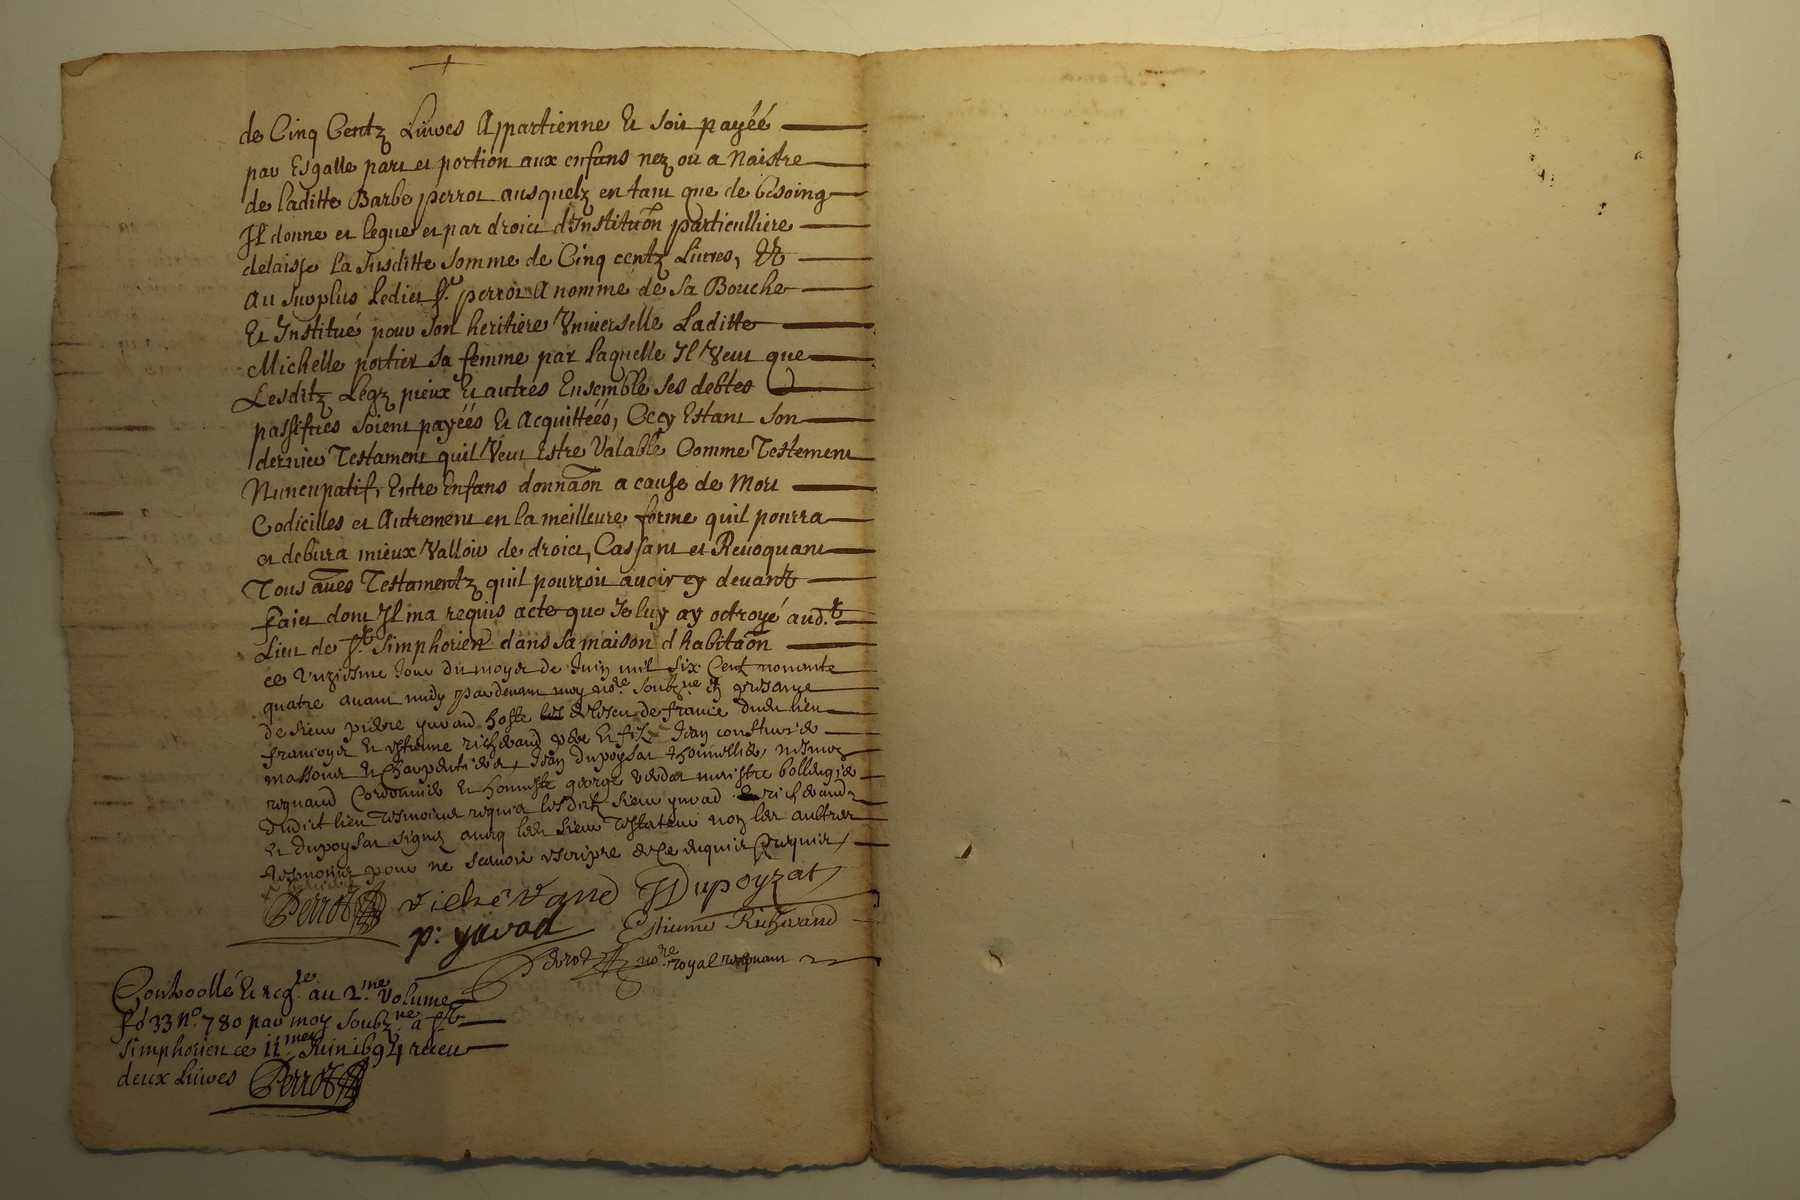 de Cinq Centz Livres Appartienne Et soit payéé
par Esgalle part et portion aux enfans nez ou a Naistre
de laditte Barbe perrot ausquelz en tant que de besoing
Il donne et legue et par droict d'Instituon particulliere
delaisse la susditte somme de Cinq centz Livres, Et
Au surplus Ledict Sr. perrot A nommé de sa Bouche
Et Institué pour son heritiere Vniverselle Laditte
Michelle portier sa femme par laquelle Il Veut que
Lesditz Legz pieux Et autres Ensemble ses debtes
passifues soient payéés Et Acquittéés, Cecy Estant son
dernier Testament quil Veut Estre Valable Comme Testement
Nuncupatif, Entre Enfans donnaon a cause de Mort
Codicilles et Autrement en la meilleure forme quil pourra
et debura mieux Valloir de droict, Cassant et Reuoquant
Tous aues Testamentz quil pourroit auoir cy deuant
Faict dont Il ma requis acte que Ie luy ay octroyé aud.t
Lieu de St. Simphorien dans sa maison d'habitaon
ce Vnziesme Jour du moys de Juin mil six Cent nonante
quatre auant midy pardeuant moy nore. soubzne. Et presance
de sieur pierre yuvad hoste de france dudit lieu
françoys Et Estienne richeuand pere Et filz
massons Et Charpentiers, Jean dupoysat
Cordonnier Et honneste george verdat
dudict lieu Tesmoins requis lesditz sieur yuvad richeuandz
Et dupoysat signez auecq ledit sieur Testateur non les aultres
Tesmoins pour ne scauoir Escripre de Ce Enquis Et requis
Perrot richevand JDupoyzat
p: yuvad Estienne Richevand
Perrot nore. royal recepuant
Controollé Et regre. au 2.me Volume
fo 33 no. 780 par moy soubzne. a St.
Simphorien ce 11.me Juin 1694 receu
deux Livres Perrot